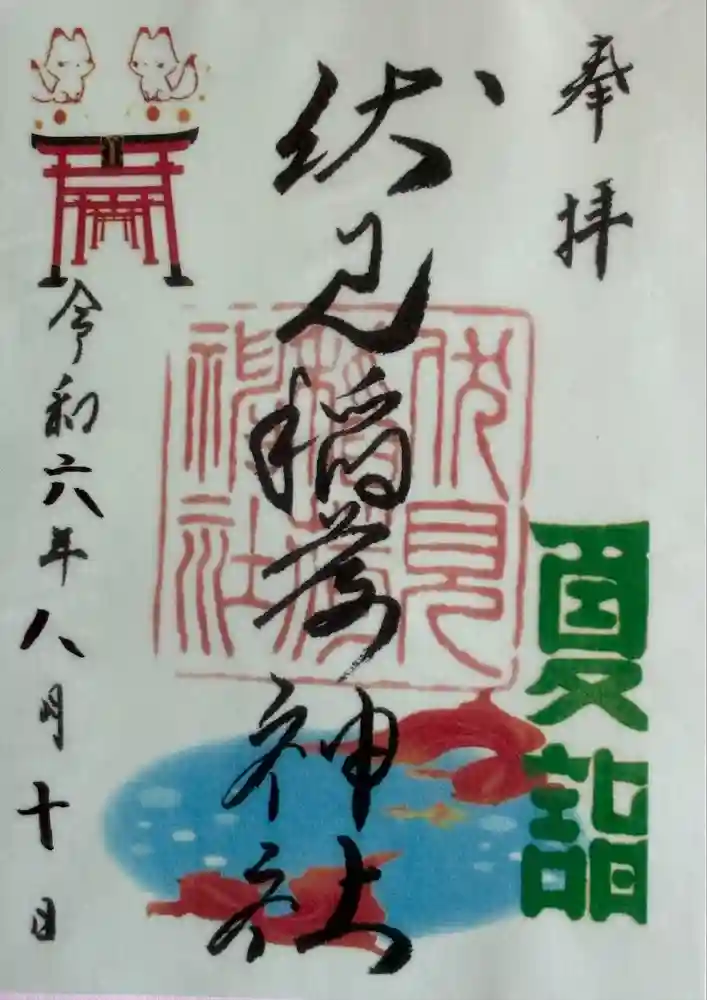 奉拝
夏詣
伏見稲荷神社
伏見稲荷神社
令和六年八月十日